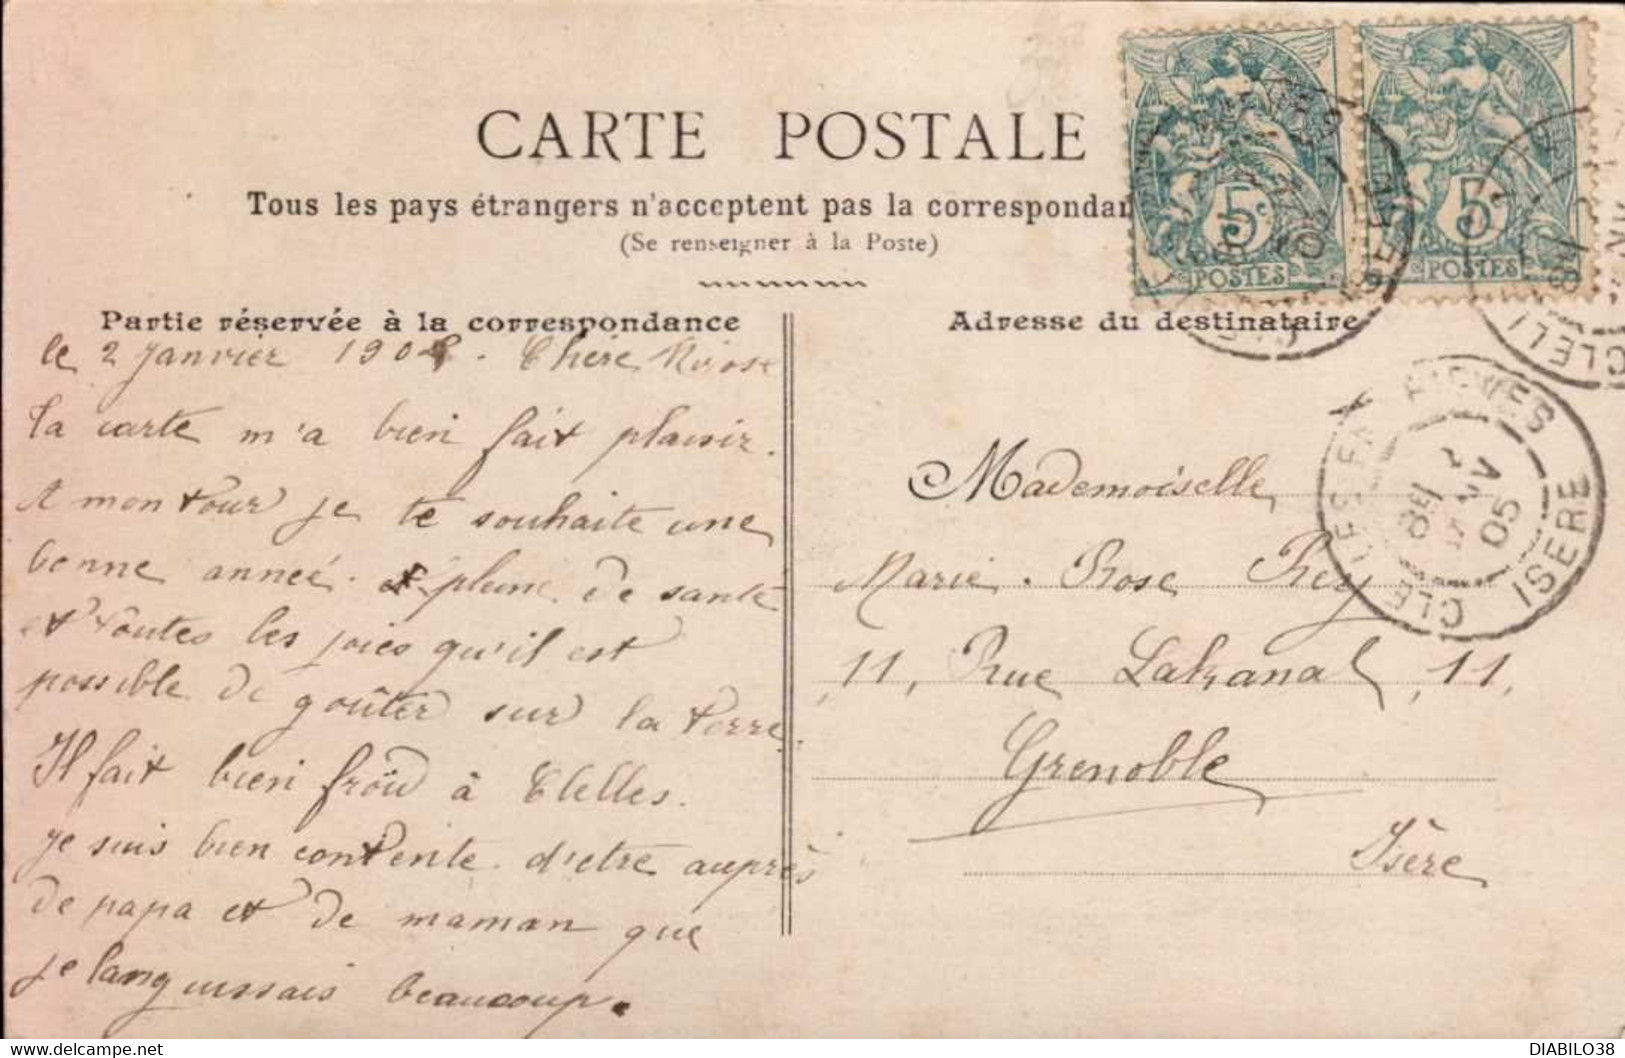 CARTE POSTALE
Tous les pays étrangers n'acceptent pas la correspondan
(Se renseigner à la Poste)
Partie réservée à la correspondance
Adresse du destinataire
5c
POSTES
5
POSTES
le 2 Janvier 190 . Chère
Ta carte m'a bien fait plaisir.
A mon tour je te souhaite une
bonne anneé. et pleine de santé
et toutes les joies qu'il est
possible de goûter sur la terre.
Il fait bien froid à Clelles.
Je suis bien contente d'etre auprès
de papa et de maman que
je languissais beaucoup.
Mademoiselle
Marie. Rose Rey
11, Rue Lakanal, 11,
Grenoble
Isère
CLELLES ISERE
18
JANV
05
DIABILO38